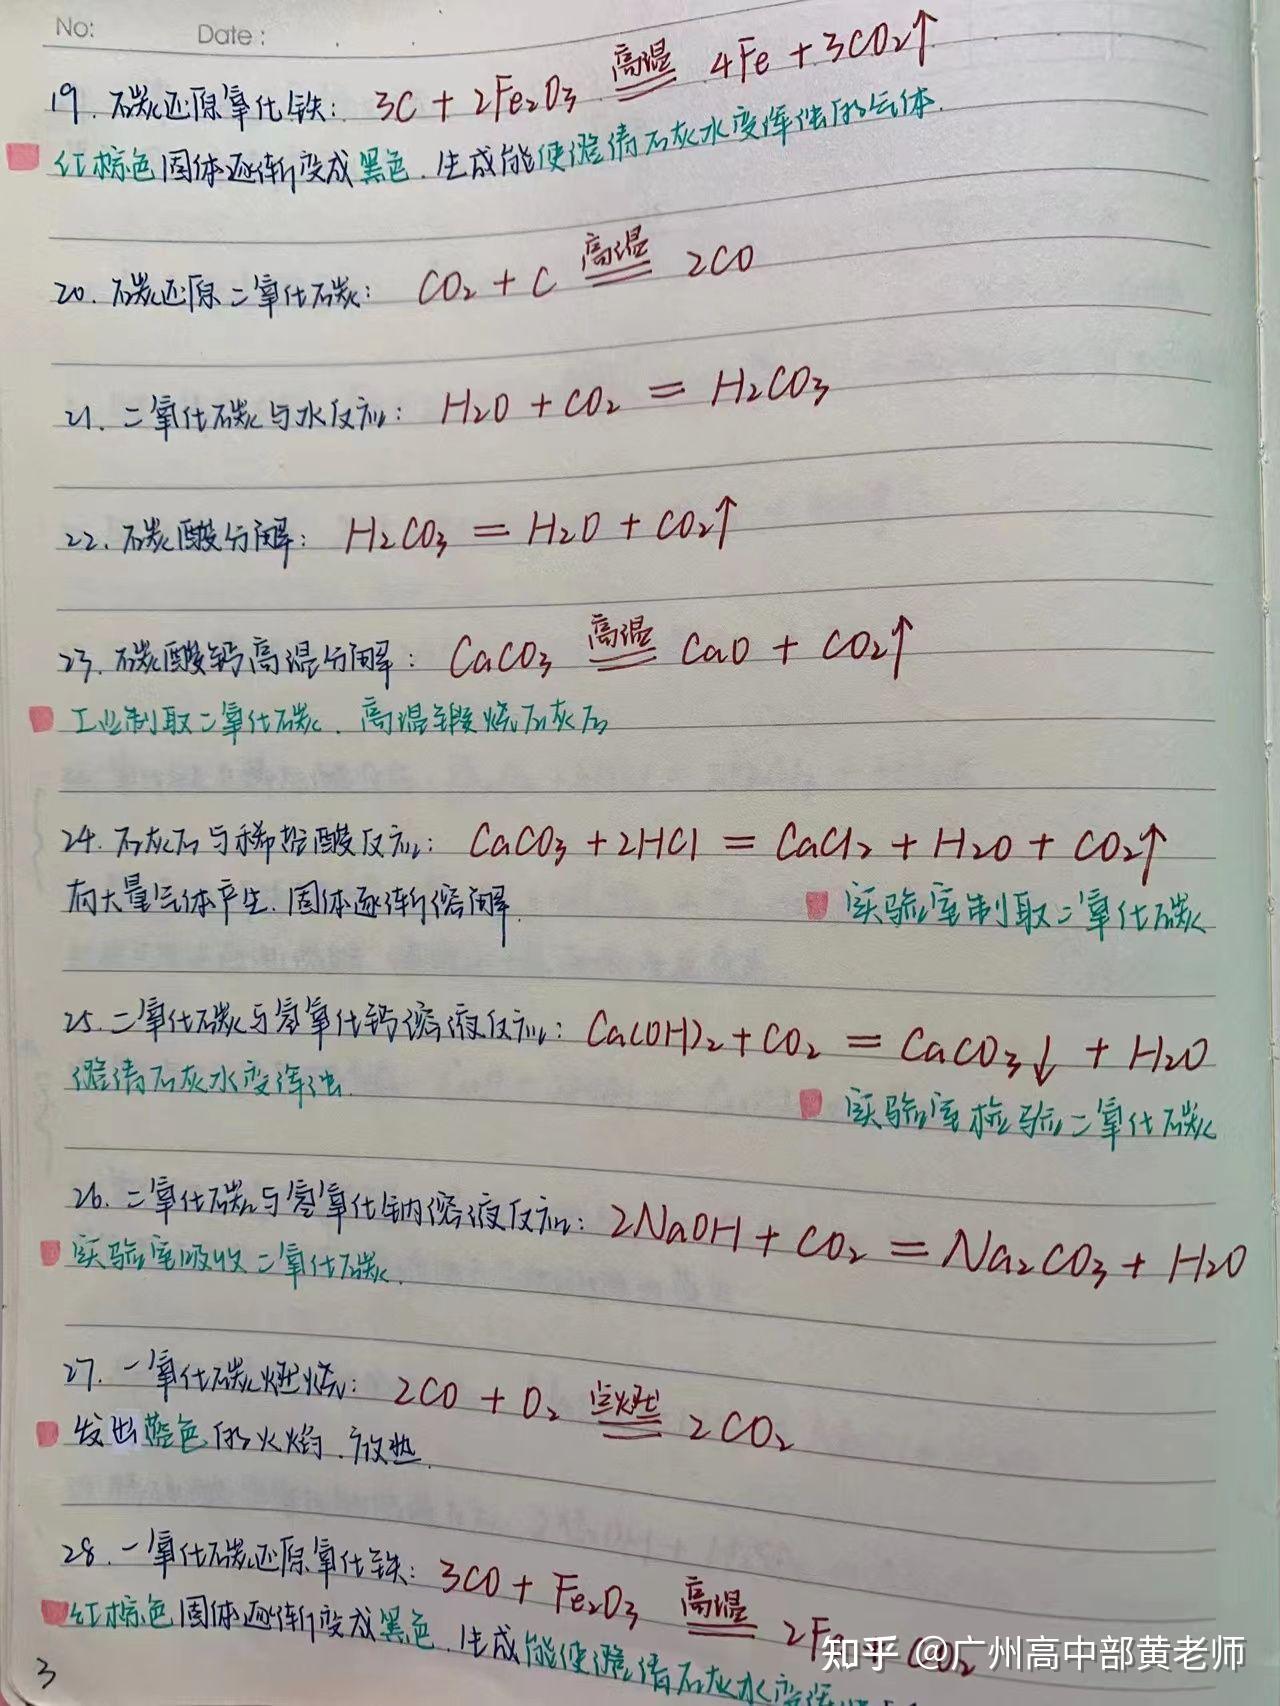 No:
Date:
19. 碳还原氧化铁: 3C + 2Fe₂O₃ 高温 4Fe + 3CO₂↑
红棕色固体逐渐变成黑色. 生成能使澄清石灰水变浑浊的气体.
20. 碳还原二氧化碳: CO₂ + C 高温 2CO
21. 二氧化碳与水反应: H₂O + CO₂ = H₂CO₃
22. 碳酸分解: H₂CO₃ = H₂O + CO₂↑
23. 碳酸钙高温分解: CaCO₃ 高温 CaO + CO₂↑
工业制取二氧化碳. 高温锻烧石灰石
24. 石灰石与稀盐酸反应: CaCO₃ + 2HCl = CaCl₂ + H₂O + CO₂↑
有大量气体产生. 固体逐渐溶解.
实验室制取二氧化碳
25. 二氧化碳与氢氧化钙溶液反应: Ca(OH)₂ + CO₂ = CaCO₃↓ + H₂O
澄清石灰水变浑浊.
实验室检验二氧化碳
26. 二氧化碳与氢氧化钠溶液反应: 2NaOH + CO₂ = Na₂CO₃ + H₂O
实验室吸收二氧化碳.
27. 一氧化碳燃烧: 2CO + O₂ 点燃 2CO₂
发出蓝色的火焰. 放热.
28. 一氧化碳还原氧化铁: 3CO + Fe₂O₃ 高温 2Fe + CO₂
红棕色固体逐渐变成黑色. 生成能使澄清石灰水变浑
3
知乎 @广州高中部黄老师